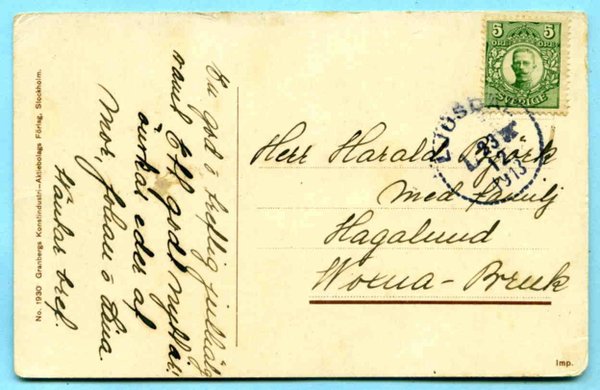 En god o treflig julhälg
samt Ett godt nytt år
önskas eder af
Mor, Johan o Lina
Väntar bref.
5 5
ÖRE ÖRE
SVERIGE
LJUSDAL
23 12
1913
Herr Harald Björk
med familj
Hagalund
Woxna-Bruk
No. 1930 Granbergs Konstindustri-Aktiebolags Förlag, Stockholm.
Imp.